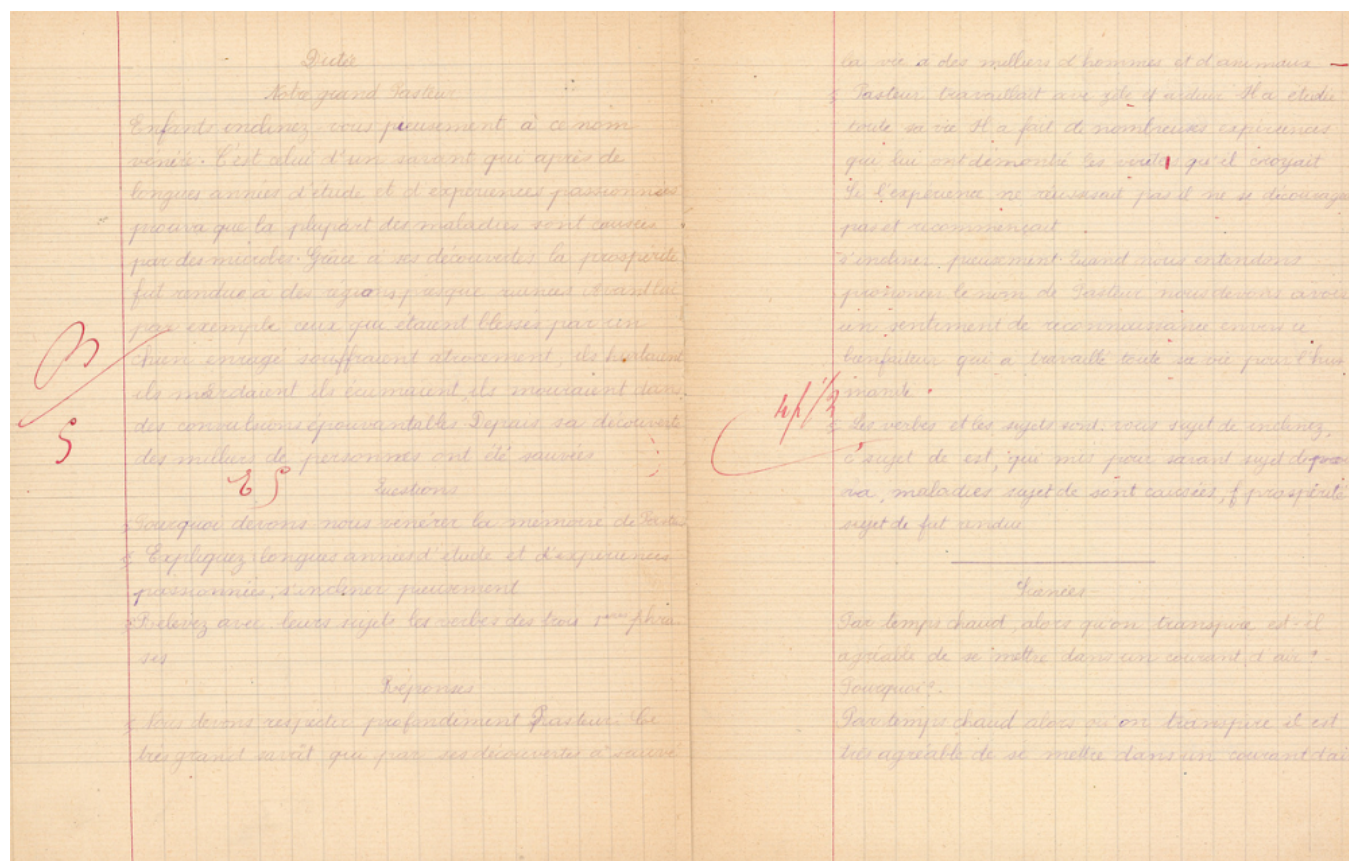 Dictée
Notre grand Pasteur
Enfants inclinez-vous pieusement à ce nom
vénéré. C'est celui d'un savant qui après de
longues années d'étude et d'expériences passionnées
prouva que la plupart des maladies sont causées
par des microbes. Grâce à ses découvertes la prospérité
fut rendue à des régions presque ruinées. Avant lui
par exemple ceux que étaient blessés par un
chien enragé souffraient atrocement, ils hurlaient
ils mordaient ils écumaient, ils mouraient dans
des convulsions épouvantables Depuis sa découverte
des milliers de personnes ont été sauvées
Questions
Pourquoi devons nous vénérer la mémoire de
Expliquez: longues années d'étude et d'expériences
passionnées, s'incliner pieusement
Relevez avec leurs sujets les verbes des trois 1ères phra
ses
Réponses
Nous devons respecter profondément Pasteur. Ce
très grand qui par ses découvertes a sauvé
la vie à des milliers d'hommes et d'animaux
Pasteur travaillait avec zèle et ardeur Il a étudié
toute sa vie Il a fait de nombreuses expériences
qui lui ont démontré les vérités qu'il croyait
Si l'expérience ne réussissait pas il ne se décourageait
pas et recommençait
s'incliner pieusement Quand nous entendons
prononcer le nom de Pasteur nous devons avoir
un sentiment de reconnaissance envers ce
bienfaiteur qui a travaillé toute sa vie pour l'hu
manité
Les verbes et les sujets sont: vous sujet de inclinez,
C' sujet de est, qui mis pour savant sujet de prou
va, maladies sujet de sont causées, prospérité
sujet de fut rendue
Sciences
Par temps chaud, alors qu'on transpire est-il
agréable de se mettre dans un courant d'air?
Pourquoi?
Par temps chaud alors où on transpire il est
très agréable de se mettre dans un courant d'ai